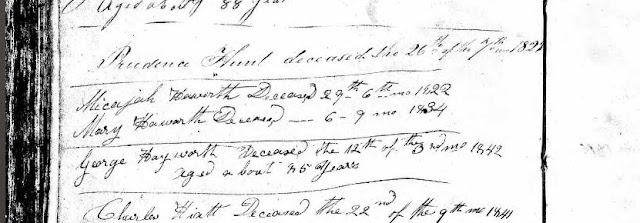 Aged about 88 Years
Prudence Hunt deceased the 26th of the 7th mo 1829
Micajah Haworth Deceased 29th 6th mo 1822
Mary Haworth Deceased --- 6 - 9 mo 1834
George Hayworth Deceased the 12th of the 3rd mo 1842
aged about 85 Years
Charles Hiatt Deceased the 22nd of the 9th mo 1841